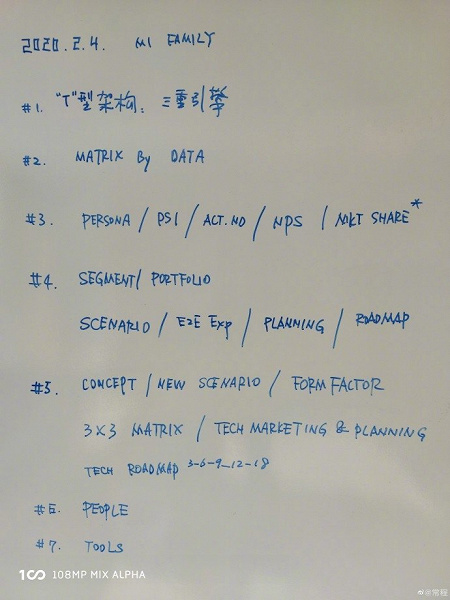 2020.2.4. MI FAMILY
#1. "T"型架构: 三重引擎
#2. MATRIX By DATA
#3. PERSONA / PSI / ACT.NO / NPS / MKT SHARE*
#4. SEGMENT / PORTFOLIO
SCENARIO / E2E Exp / PLANNING / ROADMAP
#5. CONCEPT / NEW SCENARIO / FORM FACTOR
3×3 MATRIX / TECH MARKETING & PLANNING
TECH ROADMAP 3-6-9-12-18
#6. PEOPLE
#7. TOOLS
108MP MIX ALPHA
@常程